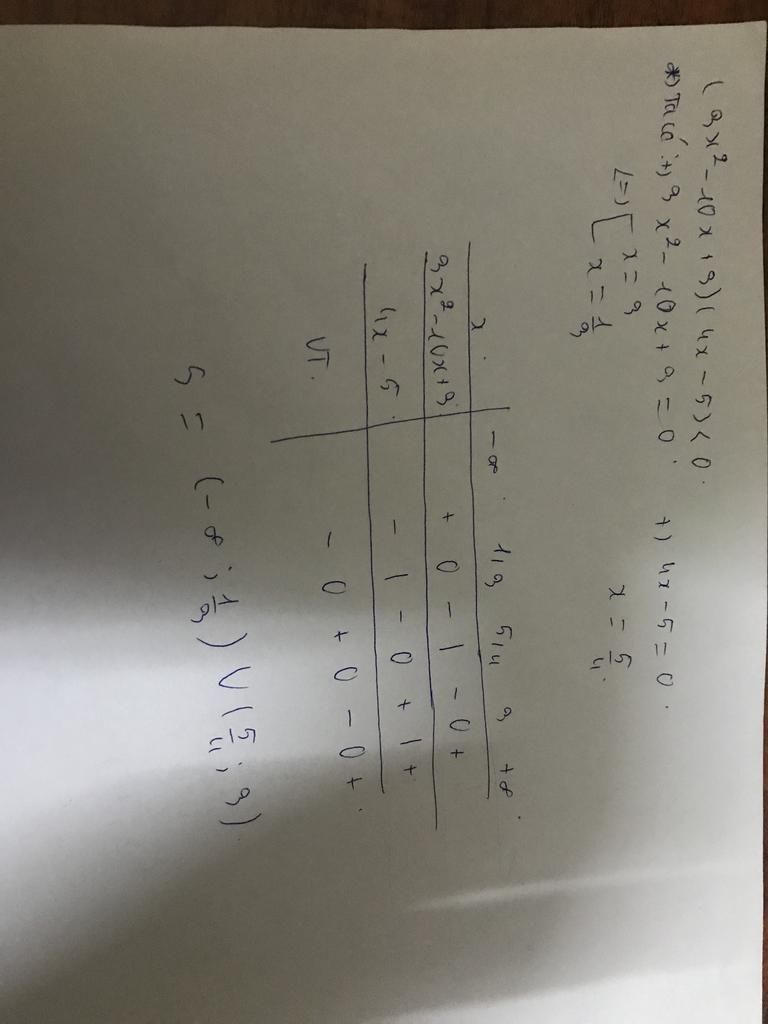 (3x² - 10x + 3)(4x - 5) < 0.
*) Ta có: +) 3x² - 10x + 3 = 0. +) 4x - 5 = 0.
<=> [ x = 3 x = 5/4.
x = 1/3
x. -∞. 1/3 5/4 3 +∞.
3x² - 10x + 3. + 0 - | - 0 +
4x - 5. - | - 0 + | +
VT. - 0 + 0 - 0 + .
S = (-∞; 1/3) ∪ (5/4; 3)